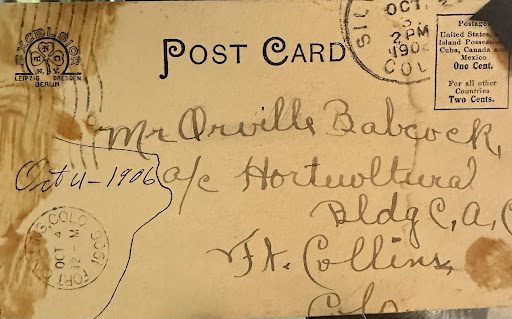 EXCELSIOR
LEIPZIG DRESDEN
BERLIN
POST CARD
OCT.
3
2 PM
COL
Postage
United States,
Island Possess
Cuba, Canada and
Mexico
One Cent.
For all other
Countries
Two Cents.
Mr Orville Babcock,
Oct 4-1906
a/c Hortucltural
Bldg C, A, C
Ft. Collins,
Colo
FORT COLLINS, COLO.
OCT 4
12 - M